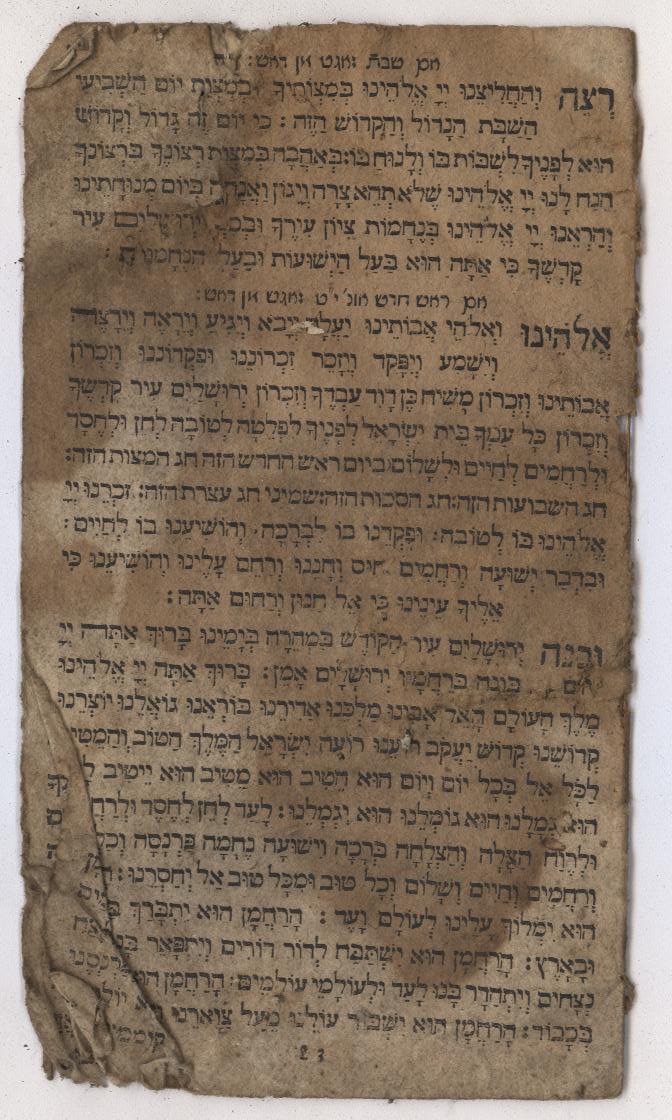 אם שבת זאגט מן דאש:
רְצֵה וְהַחֲלִיצֵנוּ יְיָ אֱלֹהֵינוּ בְּמִצְוֹתֶיךָ וּבְמִצְוַת יוֹם הַשְּׁבִיעִי
הַשַּׁבָּת הַגָּדוֹל וְהַקָּדוֹשׁ הַזֶּה: כִּי יוֹם זֶה גָּדוֹל וְקָדוֹשׁ
הוּא לְפָנֶיךָ לִשְׁבּוֹת בּוֹ וְלָנוּחַ בּוֹ: בְּאַהֲבָה כְּמִצְוַת רְצוֹנֶךָ בִּרְצוֹנְךָ
הָנַח לָנוּ יְיָ אֱלֹהֵינוּ שֶׁלֹּא תְהֵא צָרָה וְיָגוֹן וַאֲנָחָה בְּיוֹם מְנוּחָתֵינוּ
וְהַרְאֵנוּ יְיָ אֱלֹהֵינוּ בְּנֶחָמוֹת צִיּוֹן עִירֶךָ וּבְבִנְיַן יְרוּשָׁלַיִם עִיר
קָדְשֶׁךָ כִּי אַתָּה הוּא בַּעַל הַיְשׁוּעוֹת וּבַעַל הַנֶּחָמוֹת:
אם ראש חודש זאגט מן דאש:
אֱלֹהֵינוּ וֵאלֹהֵי אֲבוֹתֵינוּ יַעֲלֶה וְיָבֹא וְיַגִּיעַ וְיֵרָאֶה וְיֵרָצֶה
וְיִשָּׁמַע וְיִפָּקֵד וְיִזָּכֵר זִכְרוֹנֵנוּ וּפִקְדוֹנֵנוּ וְזִכְרוֹן
אֲבוֹתֵינוּ וְזִכְרוֹן מָשִׁיחַ בֶּן דָּוִד עַבְדֶּךָ וְזִכְרוֹן יְרוּשָׁלַיִם עִיר קָדְשֶׁךָ
וְזִכְרוֹן כָּל עַמְּךָ בֵּית יִשְׂרָאֵל לְפָנֶיךָ לִפְלֵטָה לְטוֹבָה לְחֵן וּלְחֶסֶד
וּלְרַחֲמִים לְחַיִּים וּלְשָׁלוֹם בְּיוֹם ראש החדש הזה חג המצות הזה:
חג השבועות הזה: חג הסכות הזה: שמיני חג עצרת הזה: זָכְרֵנוּ יְיָ
אֱלֹהֵינוּ בּוֹ לְטוֹבָה: וּפָקְדֵנוּ בוֹ לִבְרָכָה, וְהוֹשִׁיעֵנוּ בוֹ לְחַיִּים:
וּבִדְבַר יְשׁוּעָה וְרַחֲמִים חוּס וְחָנֵּנוּ וְרַחֵם עָלֵינוּ וְהוֹשִׁיעֵנוּ כִּי
אֵלֶיךָ עֵינֵינוּ כִּי אֵל חַנּוּן וְרַחוּם אַתָּה:
וּבְנֵה יְרוּשָׁלַיִם עִיר הַקּוֹדֶשׁ בִּמְהֵרָה בְיָמֵינוּ בָּרוּךְ אַתָּה יְיָ
בּוֹנֶה בְרַחֲמָיו יְרוּשָׁלַיִם אָמֵן: בָּרוּךְ אַתָּה יְיָ אֱלֹהֵינוּ
מֶלֶךְ הָעוֹלָם הָאֵל אָבִינוּ מַלְכֵּנוּ אַדִּירֵנוּ בּוֹרְאֵנוּ גּוֹאֲלֵנוּ יוֹצְרֵנוּ
קְדוֹשֵׁנוּ קְדוֹשׁ יַעֲקֹב רוֹעֵנוּ רוֹעֵה יִשְׂרָאֵל הַמֶּלֶךְ הַטּוֹב וְהַמֵּטִיב
לַכֹּל אֵל בְּכָל יוֹם וָיוֹם הוּא הֵטִיב הוּא מֵטִיב הוּא יֵיטִיב
הוּא גְמָלָנוּ הוּא גוֹמְלֵנוּ הוּא יִגְמְלֵנוּ: לָעַד לְחֵן לְחֶסֶד
וּלְרֶוַח הַצָּלָה וְהַצְלָחָה בְּרָכָה וִישׁוּעָה נֶחָמָה פַּרְנָסָה
וְרַחֲמִים וְחַיִּים וְשָׁלוֹם וְכָל טוֹב וּמִכָּל טוּב אַל יְחַסְּרֵנוּ:
הוּא יִמְלוֹךְ עָלֵינוּ לְעוֹלָם וָעֶד: הָרַחֲמָן הוּא יִתְבָּרֵךְ
וּבָאָרֶץ: הָרַחֲמָן הוּא יִשְׁתַּבַּח לְדוֹר דּוֹרִים וְיִתְפָּאַר
נְצָחִים וְיִתְהַדַּר בָּנוּ לָעַד וּלְעוֹלְמֵי עוֹלָמִים: הָרַחֲמָן
בְּכָבוֹד: הָרַחֲמָן הוּא יִשְׁבּוֹר עוּלֵּנוּ מֵעַל צַוָּארֵנוּ